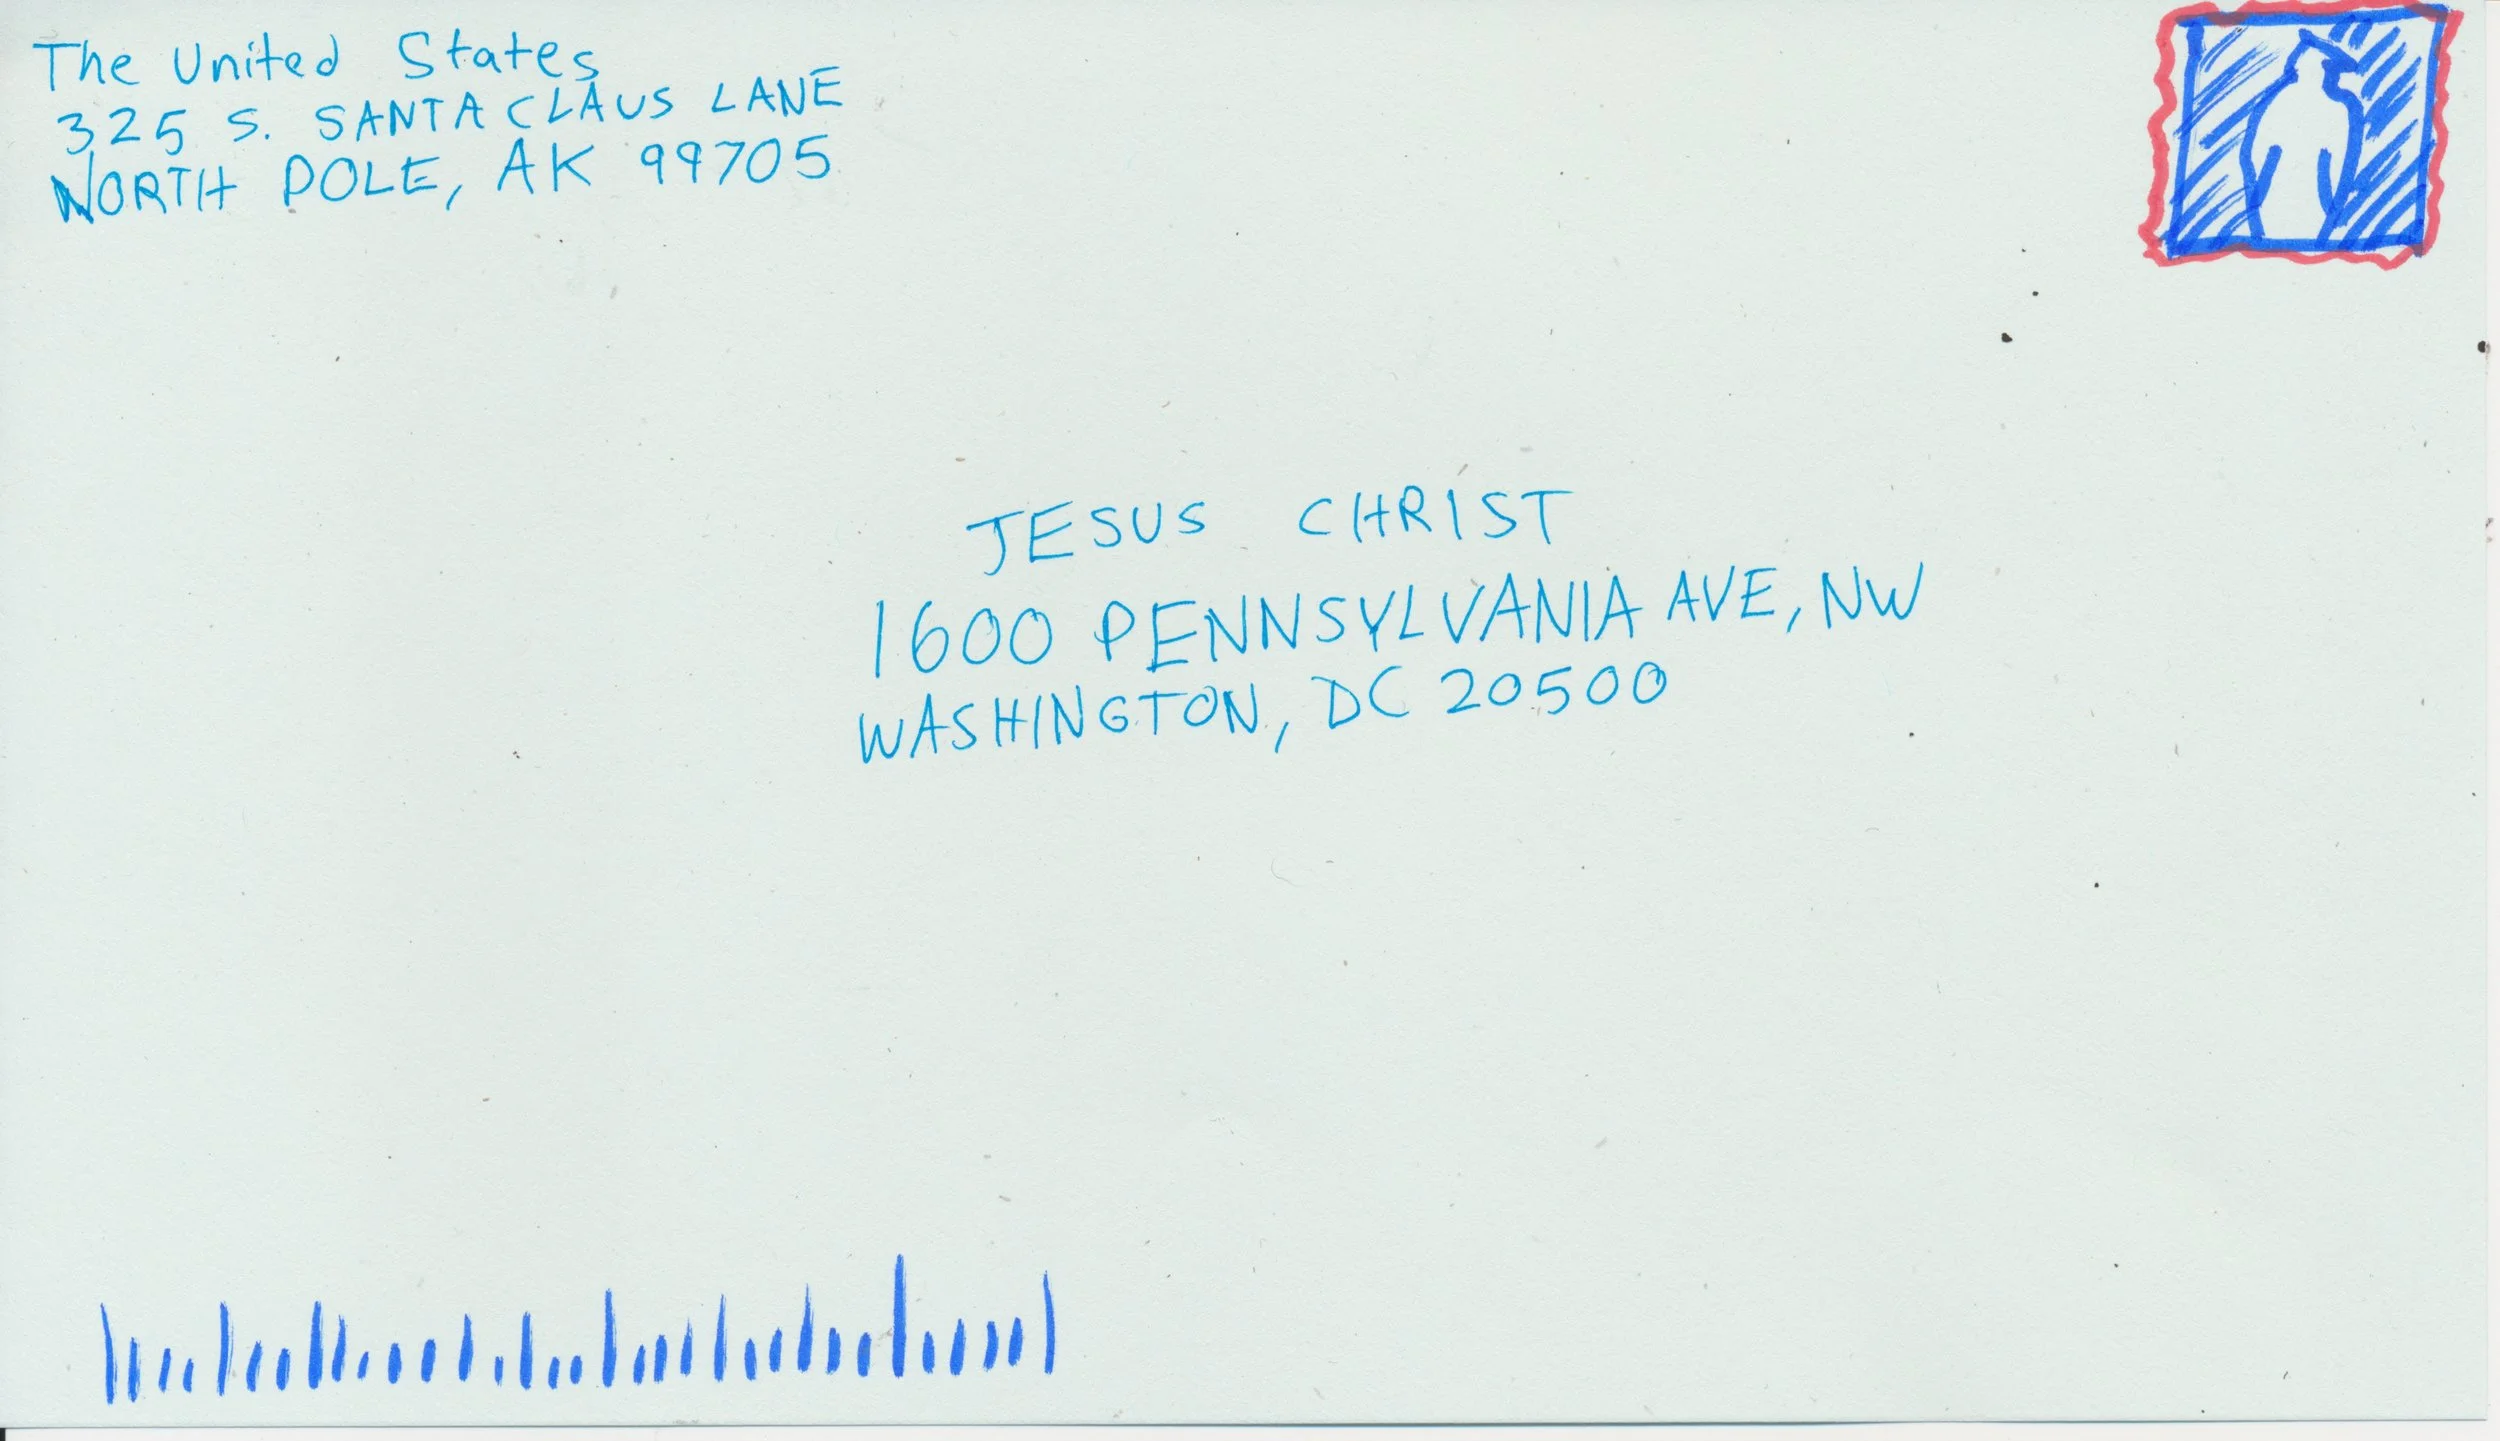 The United States
325 S. SANTA CLAUS LANE
NORTH POLE, AK 99705
JESUS CHRIST
1600 PENNSYLVANIA AVE, NW
WASHINGTON, DC 20500